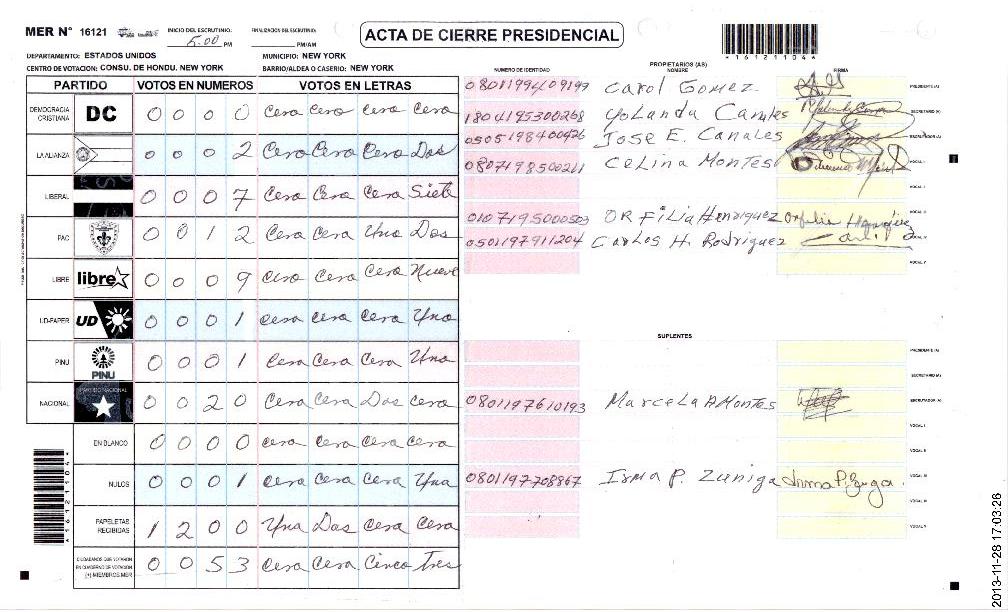 MER N° 16121
INICIO DEL ESCRUTINIO: 5:00 PM
FINALIZACION DEL ESCRUTINIO: PM/AM
ACTA DE CIERRE PRESIDENCIAL
*16121104*
DEPARTAMENTO: ESTADOS UNIDOS
MUNICIPIO: NEW YORK
CENTRO DE VOTACION: CONSU. DE HONDU. NEW YORK
BARRIO/ALDEA O CASERIO: NEW YORK
PARTIDO VOTOS EN NUMEROS VOTOS EN LETRAS
DEMOCRACIA CRISTIANA DC 0 0 0 0 Cero Cero Cero Cero
LA ALIANZA 0 0 0 2 Cero Cero Cero Dos
LIBERAL 0 0 0 7 Cero Cero Cero Siete
PAC 0 0 1 2 Cero Cero Uno Dos
LIBRE libre 0 0 0 9 Cero Cero Cero Nueve
UD-FAPER UD 0 0 0 1 Cero Cero Cero Uno
PINU PINU 0 0 0 1 Cero Cero Cero Uno
NACIONAL PARTIDO NACIONAL 0 0 2 0 Cero Cero Dos Cero
EN BLANCO 0 0 0 0 Cero Cero Cero Cero
NULOS 0 0 0 1 Cero Cero Cero Uno
PAPELETAS RECIBIDAS 1 2 0 0 Uno Dos Cero Cero
CIUDADANOS QUE VOTARON EN CUADERNO DE VOTACION (+) MIEMBROS MER 0 0 5 3 Cero Cero Cinco Tres
*16121104*
PROPIETARIOS (AS)
NUMERO DE IDENTIDAD NOMBRE FIRMA
0801199409199 Carol Gomez PRESIDENTE (A)
1804195300268 Yolanda Canales SECRETARIO (A)
0505198400426 JOSE E. Canales ESCRUTADOR (A)
0807198500211 CeLina Montes VOCAL I
VOCAL II
0107195000503 ORFiLia Henriquez Orfilia Henriquez
0501197911204 Carlos H. Rodriguez VOCAL IV
VOCAL V
SUPLENTES
PRESIDENTE (A)
SECRETARIO (A)
0801197610193 MarceLa A Montes ESCRUTADOR (A)
VOCAL I
VOCAL II
0801197708867 Irma P. Zuniga Irma P. Zuniga VOCAL III
VOCAL IV
VOCAL V
2013-11-28 17:03:26